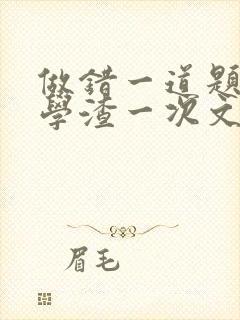 做錯一道題
學渣一次文
眉毛